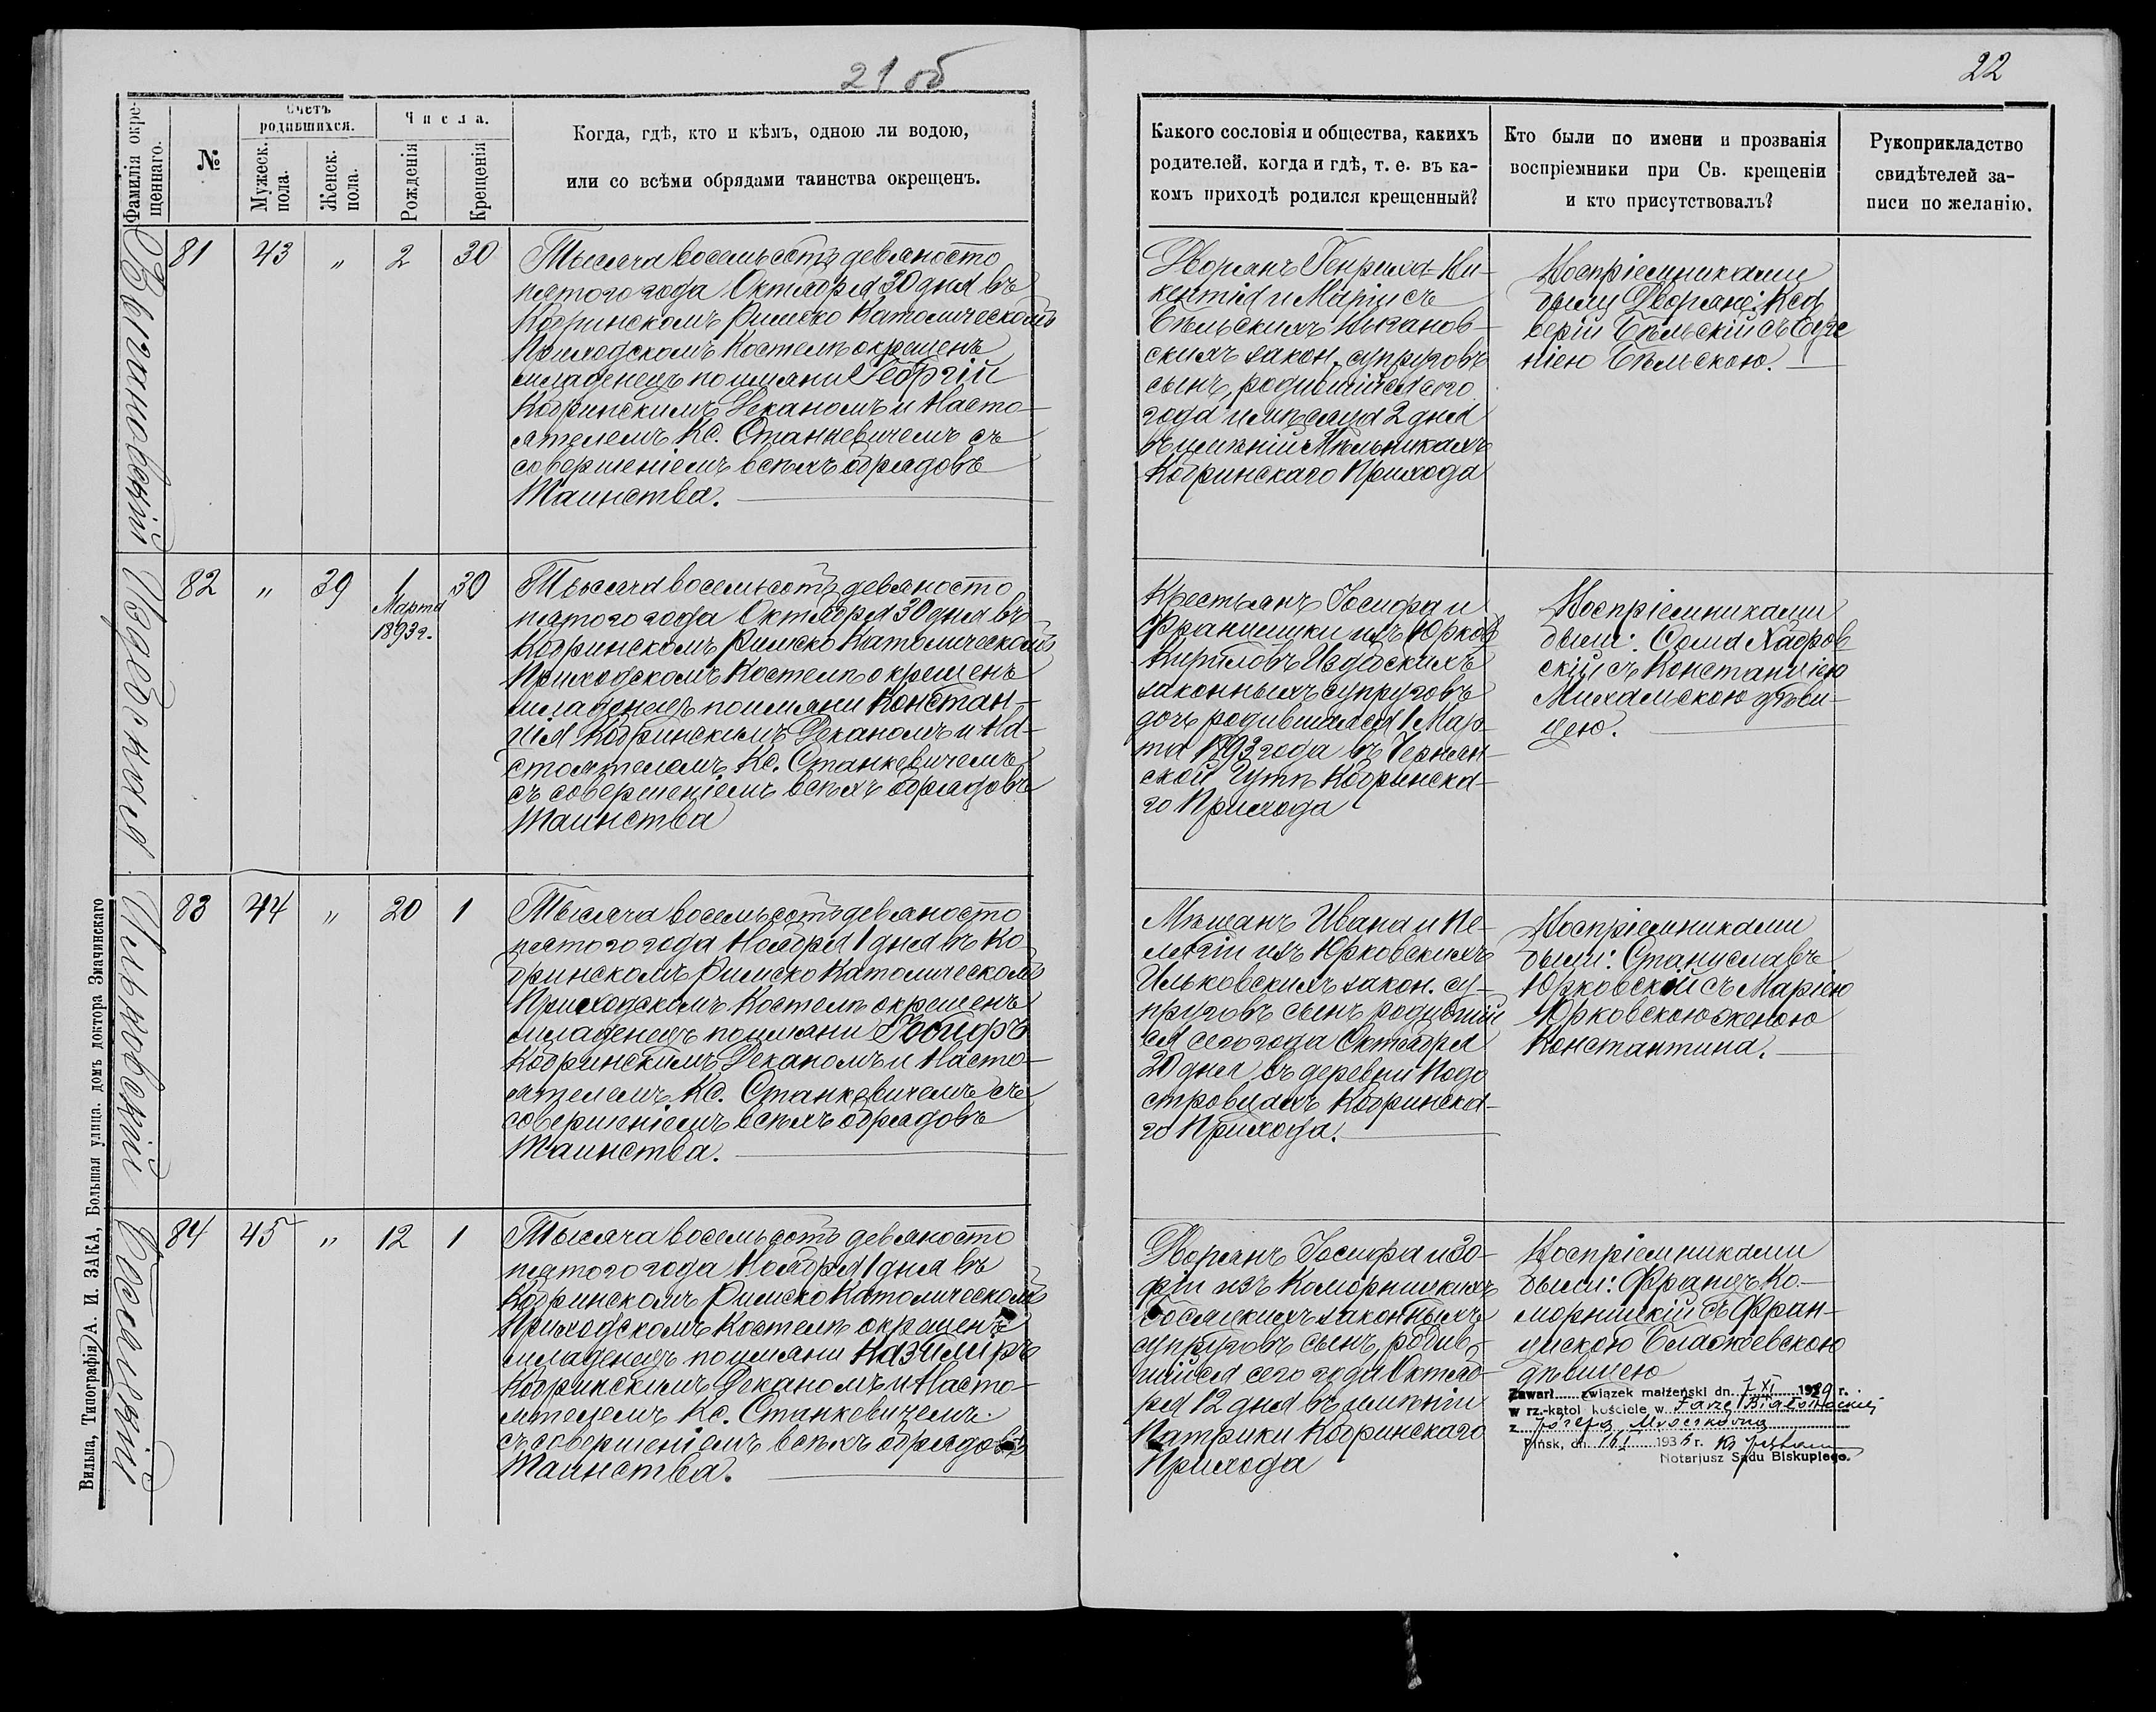 21 об
22
Фамилія окрещеннаго.
№
Счетъ родившихся.
Мужеск. пола.
Женск. пола.
Числа.
Рожденія
Крещенія
Когда, гдѣ, кто и кѣмъ, одною ли водою,
или со всѣми обрядами таинства окрещенъ.
Какого сословія и общества, какихъ
родителей, когда и гдѣ, т. е. въ ка-
комъ приходѣ родился крещенный?
Кто были по имени и прозванія
воспріемники при Св. крещеніи
и кто присутствовалъ?
Рукоприкладство
свидѣтелей за-
писи по желанію.
81 43 " 2 30
Тысяча восемьсотъ девяносто
пятого года Октября 30 дня въ
Кобринскомъ Римско Католическомъ
Приходскомъ Костелѣ окрещенъ
младенецъ по имяни Георгій
Кобринскимъ Деканомъ и Насто-
ятелемъ Кс. Станкевичемъ съ
совершеніемъ всѣхъ обрядовъ
Таинства.
Дворянъ Генриха-Ви-
кентія и Маріи съ
Бѣльскихъ
скихъ закон. супруговъ
сынъ, родившійся сего
года и мѣсяца 2 дня
въ имѣніи Мѣльникахъ
Кобринскаго Прихода
Воспріемниками
были Дворяне: Кса
верій Бѣльскій съ Евге
ніею Бѣльскою.
Избодская
82 " 39 1 30
Марта
1893 г.
Тысяча восемьсотъ девяносто
пятого года Октября 30 дня въ
Кобринскомъ Римско Католическомъ
Приходскомъ Костелѣ окрещенъ
младенецъ по имяни Констан-
ція Кобринскимъ Деканомъ и На-
стоятелемъ Кс. Станкевичемъ
съ совершеніемъ всѣхъ обрядовъ
Таинства
Крестьянъ Іосифа и
Францишки изъ Юрков
Избодскихъ
законныхъ супруговъ
дочь родившаяся 1 Мар-
та 1893 года въ Чернян-
ской Гутѣ Кобринска-
го Прихода
Воспріемниками
были: Ѳома
скій съ Констанціею
Михальскою дѣви-
цею.
Ильковскій
83 44 " 20 1
Тысяча восемьсотъ девяносто
пятого года Ноября 1 дня въ Ко-
бринскомъ Римско Католическомъ
Приходскомъ Костелѣ окрещенъ
младенецъ по имяни Іосифъ
Кобринскимъ Деканомъ и Насто-
ятелемъ Кс. Станкевичемъ съ
совершеніемъ всѣхъ обрядовъ
Таинства.
Мѣщанъ Ивана и Пе-
лагіи изъ Юрковскихъ
Ильковскихъ закон. су-
пруговъ сынъ родившій
ся сего года Октября
20 дня въ деревни Подо
стровцахъ Кобринска-
го Прихода.
Воспріемниками
были: Станиславъ
Юрковскій съ Маріею
Юрковскою женою
Константина.
Босяцкій
84 45 " 12 1
Тысяча восемьсотъ девяносто
пятого года Ноября 1 дня въ
Кобринскомъ Римско Католическомъ
Приходскомъ Костелѣ окрещенъ
младенецъ по имяни Казимиръ
Кобринскимъ Деканомъ и Насто-
ятелемъ Кс. Станкевичемъ
съ совершеніемъ всѣхъ обрядовъ
Таинства.
Дворянъ Іосифа и Зо-
фіи изъ Коморницкихъ
Босяцкихъ законныхъ
супруговъ сынъ, родив-
шійся сего года Октяб-
ря 12 дня въ имѣніи
Патрики Кобринскаго
Прихода
Воспріемниками
были: Францъ Ко-
морницкій съ Фран-
цискою Блажеевскою
дѣвицею
Zawarł związek małżeński dn. 7 XI 1929 r.
w rz.-katol kościele w Farze Białostockiej
z Józefą
Pińsk, dn. 16 I 1935 r. Ks
Notarjusz Sądu Biskupiego.
Вильна, Типографія А. И. ЗАКА, Большая улица, домъ доктора Значинскаго